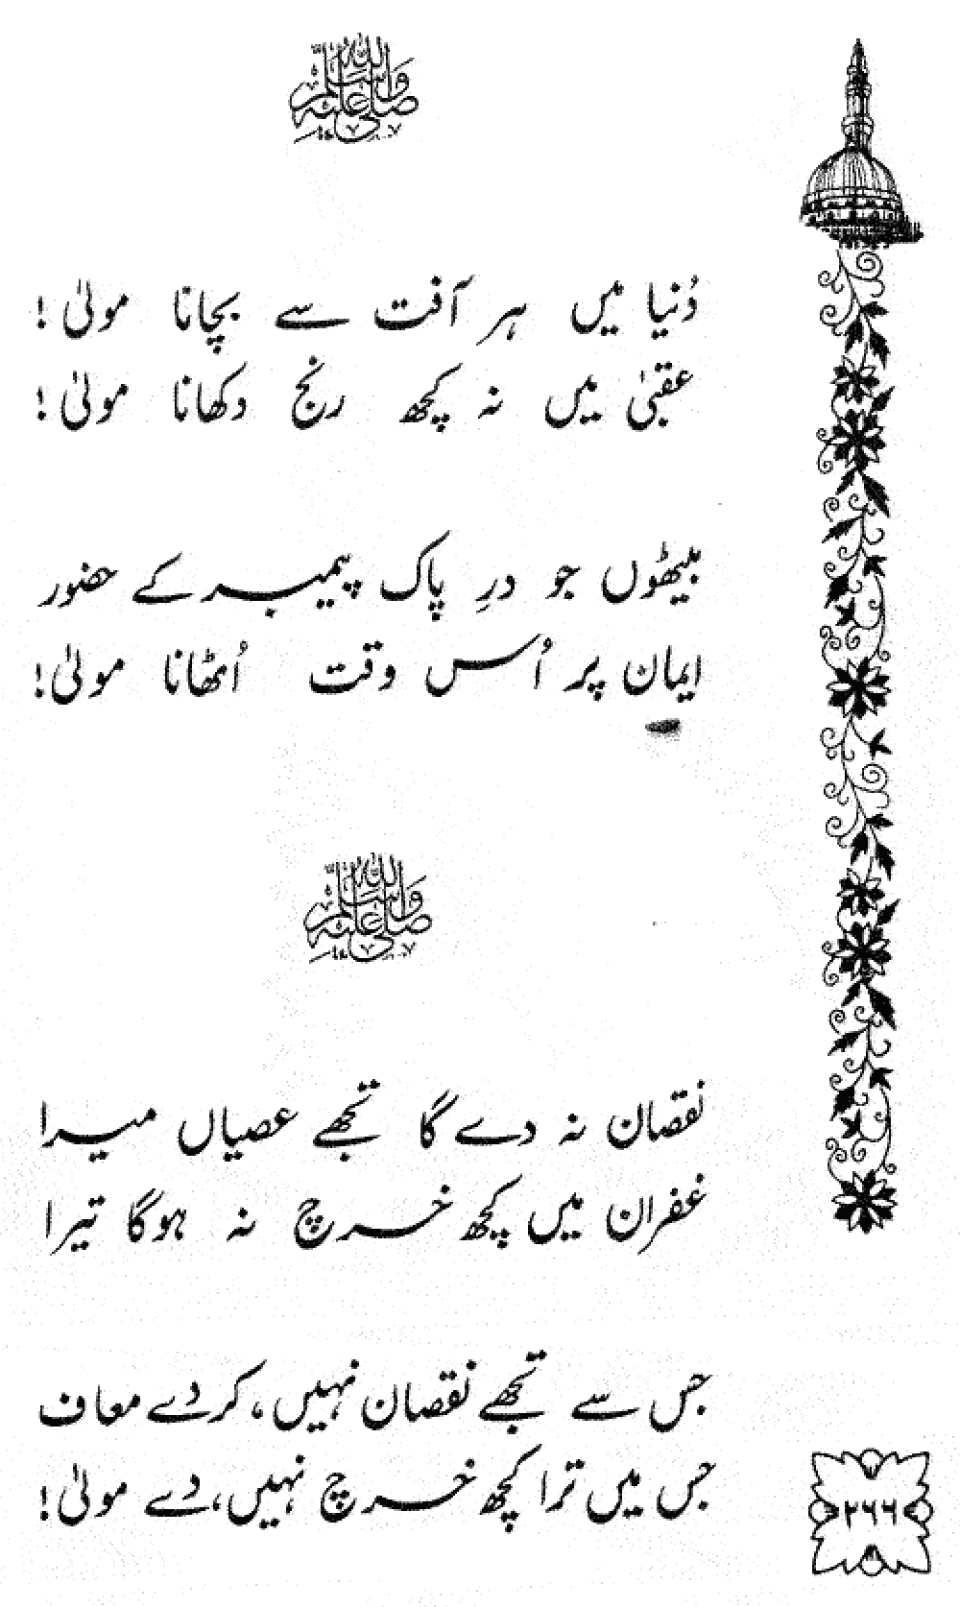 صلی اللہ علیہ وسلم
دُنیا میں ہر آفت سے بچانا مولیٰ!
عقبیٰ میں نہ کچھ رنج دکھانا مولیٰ!
بیٹھوں جو درِ پاک پیمبر کے حضور
ایمان پر اُس وقت اُٹھانا مولیٰ!
صلی اللہ علیہ وسلم
نقصان نہ دے گا تجھے عصیاں میرا
غفران میں کچھ خرچ نہ ہوگا تیرا
جس سے تجھے نقصان نہیں، کر دے معاف
جس میں ترا کچھ خرچ نہیں، دے مولیٰ!
۲۶۶